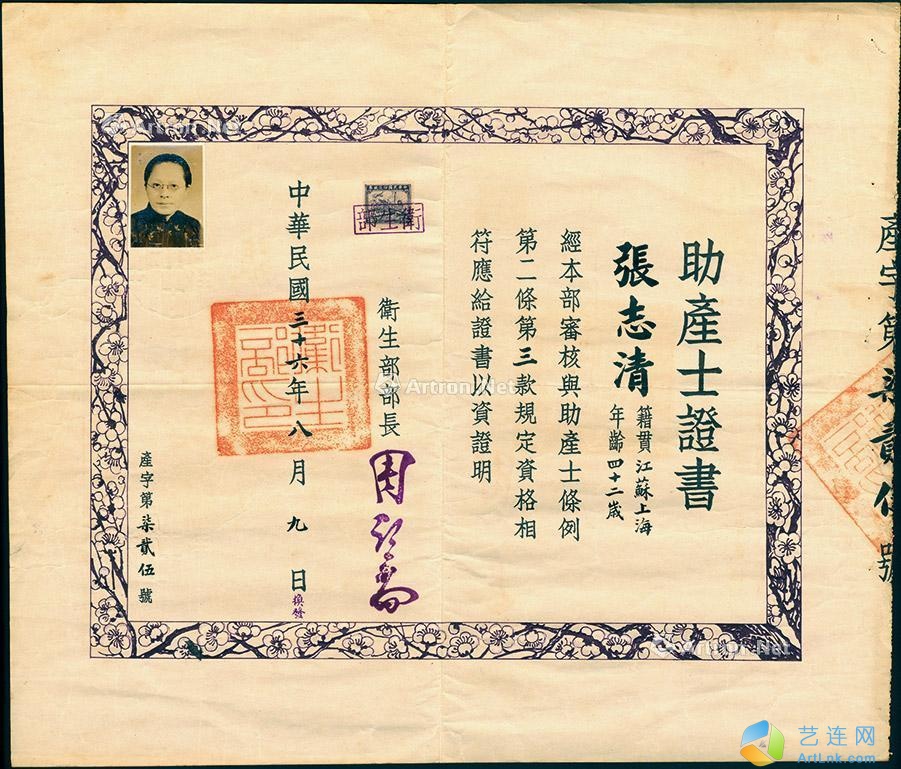 助產士證書
張志清
籍貫江蘇上海
年齡四十二歲
經本部審核與助產士條例
第二條第三款規定資格相
符應給證書以資證明
衛生部部長
周詒春
衛生部
中華民國三十六年八月九日
換發
產字第柒貳伍號
產字第柒貳伍號
衛生部印
Artron.Net
Artron.Net
Artron.Net
艺连网
ArtLnk.com